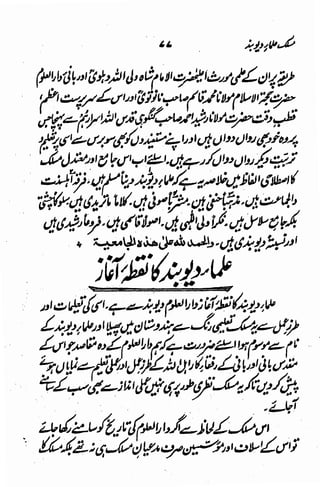 مسلک علماء دیوبند ۷۷
طریقہ پر ان کے علمی مورث اعلیٰ حضرت الامام شاہ ولی اللہ دہلویؒ اور بانی دارالعلوم
حضرت حجۃ الاسلام مولانا محمد قاسم صاحب نانوتویؒ اور اس کے سرپرست اعظم
قطب وقت حضرت مولانا رشید احمد صاحب گنگوہی قدس اللہ اسرارہم سے پہنچا جس
پر وہ خود بھی رواں دواں ہیں اور اپنے مستفیدوں کو بھی سو برس سے اسی پر تعلیم و
تربیت دیکر رواں دواں کر رہے ہیں۔ اسلئے اب اس جامع اور معتدل مسلک
کا اصطلاحی الفاظ میں خلاصہ یہ ہے کہ علماء دیوبند دیناً مسلم ہیں۔ فرقۃً اہلسنت
والجماعت ہیں۔ مذہباً حنفی ہیں۔ مشرباً صوفی ہیں۔ کلاماً ماتریدی ہیں سلوکاً چشتی
بلکہ جامع سلاسل ہیں۔ فکراً ولی اللّٰہی ہیں۔ اصولاً قاسمی ہیں۔ فروعاً رشیدی ہیں
اور نسبۃً دیوبندی ہیں۔ والحمد للہ علیٰ ھذہ الجامعیۃ
علماء دیوبند کا نقطۂ آغاز
علماء دیوبند کا نقطۂ آغاز دارالعلوم دیوبند سے ہے۔ اسی کی تعلیمات اور
طرز عمل سے یہ مسلک تعلیمی رنگ سے ہندوستان میں پھیلا اور علماء دیوبند کے
نام سے موسوم ہوا اسلئے ضرورت ہے کہ ہم دارالعلوم کے وہ مقاصد جو اس کے
مقدس بانی اور بانی کے رفقاء کار اہل اللہ کے طرز عمل اور عملی تعلیم سے نمایاں ہوئے
پیش کر دیں تاکہ یہ مسلک نظری طور پر ہی نہیں عملی انداز سے بھی سب کے سامنے
آجائے۔
اس مسلک کے لحاظ سے اگر دارالعلوم کی تاریخ کو سامنے رکھا جائے
تو اس کے اسلاف اور مؤسسین صرف مدعیان مسلک ہی نہ تھے بلکہ مسلک کا